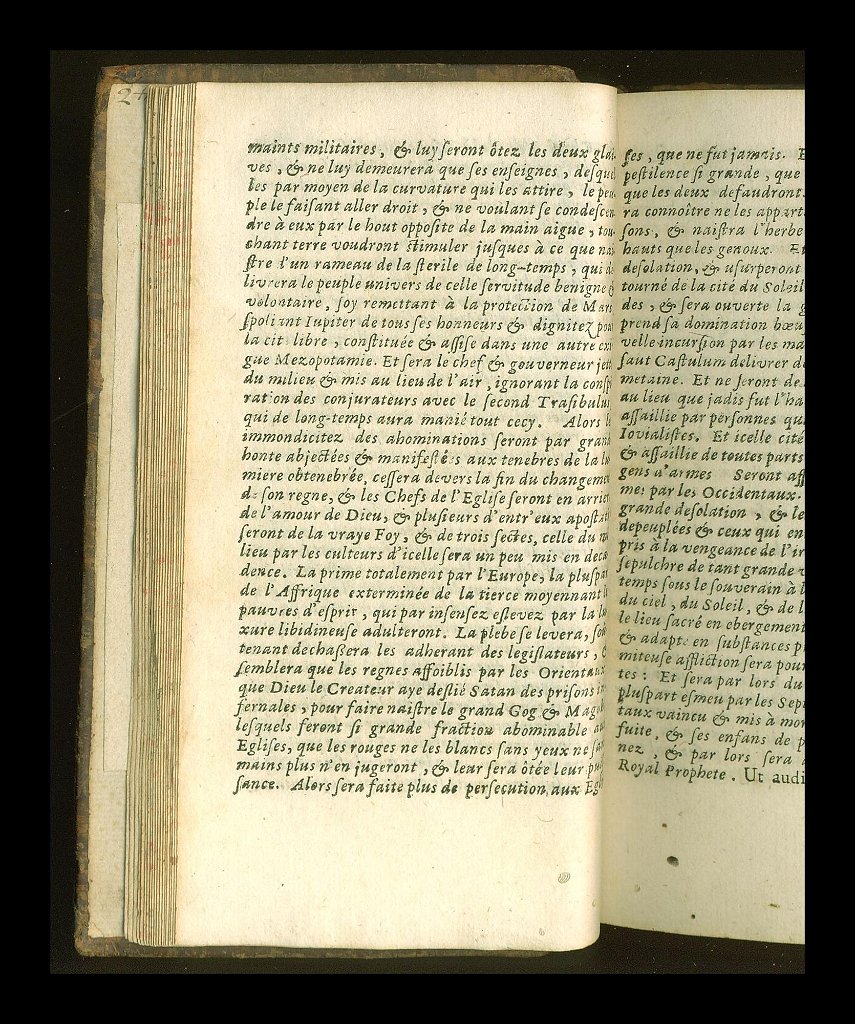 24
maints militaires, & luy ſeront ôtez les deux glai
ves, & ne luy demeurera que ſes enſeignes, deſque
les par moyen de la curvature qui les attire, le peu
ple le faiſant aller droit, & ne voulant ſe condeſcen
dre à eux par le bout oppoſite de la main aigue, tou
chant terre voudront ſtimuler juſques à ce que nai
ſtre d'un rameau de la ſterile de long-temps, qui de
livrera le peuple univers de celle ſervitude benigne &
volontaire, ſoy remettant à la protection de Mars
ſpoliant Iupiter de tous ſes honneurs & dignitez pou
la cit libre, conſtituée & aſſiſe dans une autre exi
gue Mezopotamie. Et ſera le chef & gouverneur jett
du milieu & mis au lieu de l'air, ignorant la conſp
ration des conjurateurs avec le ſecond Traſibulus
qui de long-temps aura manié tout cecy. Alors le
immondicitez des abominations ſeront par grand
honte abjectées & manifeſtées aux tenebres de la lu
miere obtenebrée, ceſſera devers la fin du changeme
de ſon regne, & les Chefs de l'Egliſe ſeront en arrier
de l'amour de Dieu, & pluſieurs d'entr'eux apoſtat
ſeront de la vraye Foy, & de trois ſectes, celle du m
lieu par les culteurs d'icelle ſera un peu mis en deca
dence. La prime totalement par l'Europe, la pluſpa
de l'Affrique exterminée de la tierce moyennant l
pauvres d'eſprit, qui par inſenſez eſlevez par la lu
xure libidineuſe adulteront. La plebe ſe levera, ſou
tenant dechaßera les adherant des legiſlateurs, &
ſemblera que les regnes affoiblis par les Orientaux
que Dieu le Createur aye deſlié Satan des priſons in
fernales, pour faire naiſtre le grand Gog & Magog
leſquels feront ſi grande fraction abominable au
Egliſes, que les rouges ne les blancs ſans yeux ne ſan
mains plus n'en jugeront, & leur ſera ôtée leur puiſ
ſance. Alors ſera faite plus de perſecution aux Egli
ſes, que ne fut jamais. E
peſtilence ſi grande, que
que les deux defaudront.
ra connoître ne les appart
ſons, & naiſtra l'herbe
hauts que les genoux. Et
deſolation, & uſurperont
tourné de la cité du Soleil
des, & ſera ouverte la g
prend ſa domination bœu
velle incurſion par les ma
ſaut Caſtulum délivrer d
metaine. Et ne ſeront de
au lieu que jadis fut l'ha
aſſaillie par perſonnes qu
Iovialiſtes. Et icelle cité
& aſſaillie de toutes parts
gens d'armes Seront aff
mes par les Occidentaux.
grande deſolation, & le
depeuplées & ceux qui en
pris à la vengeance de l'ir
ſepulchre de tant grande v
temps ſous le ſouverain à l
du ciel, du Soleil, & de l
le lieu ſacré en ebergement
& adapte en ſubſtances p
miteuſe affliction ſera pour
tes: Et ſera par lors du
pluſpart eſmeu par les Sept
taux vaincu & mis à mor
fuite, & ſes enfans de p
nez, & par lors ſera
Royal Prophete. Ut audi